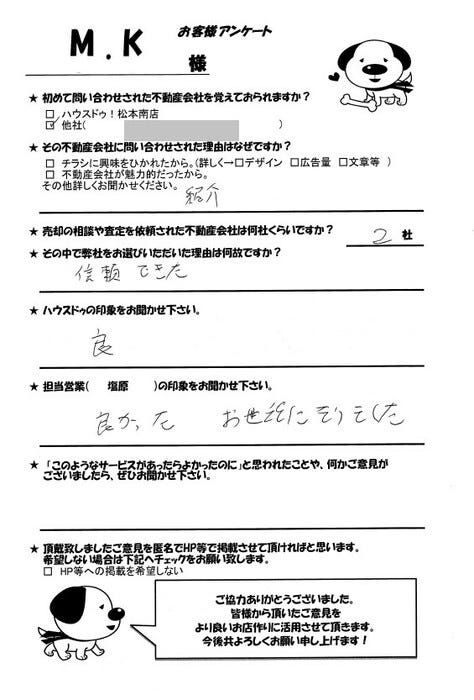 お客様アンケート
M.K 様
★ 初めて問い合わせされた不動産会社を覚えておられますか？
□ ハウスドゥ！松本南店
☑ 他社( )
★ その不動産会社に問い合わせされた理由はなぜですか？
□ チラシに興味をひかれたから。（詳しく→□デザイン □広告量 □文章等 ）
□ 不動産会社が魅力的だったから。
その他詳しくお聞かせください。
紹介
★ 売却の相談や査定を依頼された不動産会社は何社くらいですか？ 2 社
★ その中で弊社をお選びいただいた理由は何故ですか？
信頼できた
★ ハウスドゥの印象をお聞かせ下さい。
良
★ 担当営業( 塩原 )の印象をお聞かせ下さい。
良かった お世話になりました
★ 「このようなサービスがあったらよかったのに」と思われたことや、何かご意見が
ございましたら、ぜひお聞かせ下さい。
★ 頂戴致しましたご意見を匿名でHP等で掲載させて頂ければと思います。
希望しない場合は下記へチェックをお願い致します。
□ HP等への掲載を希望しない
ご協力ありがとうございました。
皆様から頂いたご意見を
より良いお店作りに活用させて頂きます。
今後共よろしくお願い申し上げます！